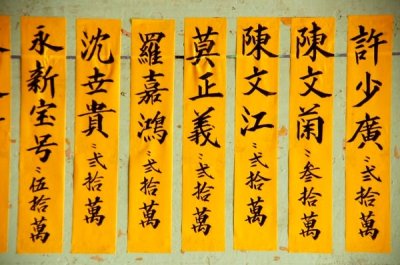 許少廣：弍拾萬
陳文菊：叁拾萬
陳文江：弍拾萬
莫正義：弍拾萬
羅嘉鴻：弍拾萬
沈世貴：弍拾萬
永新宝号：伍拾萬